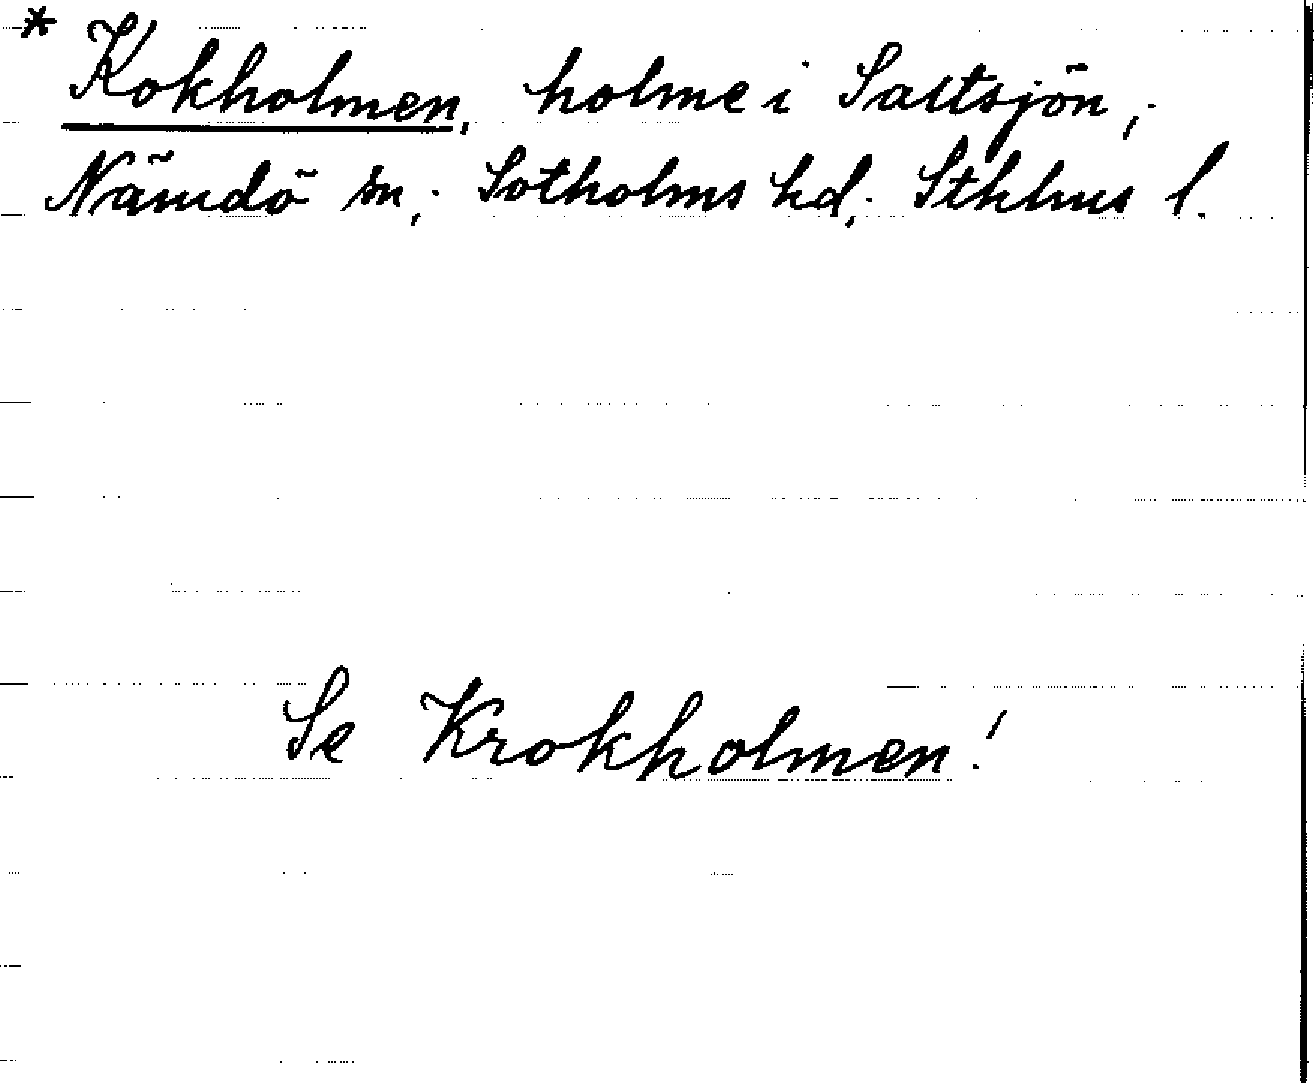 * Kokholmen, holme i Saltsjön,
Nämdö sn, Sotholms hd, Sthlms l.
Se Krokholmen!